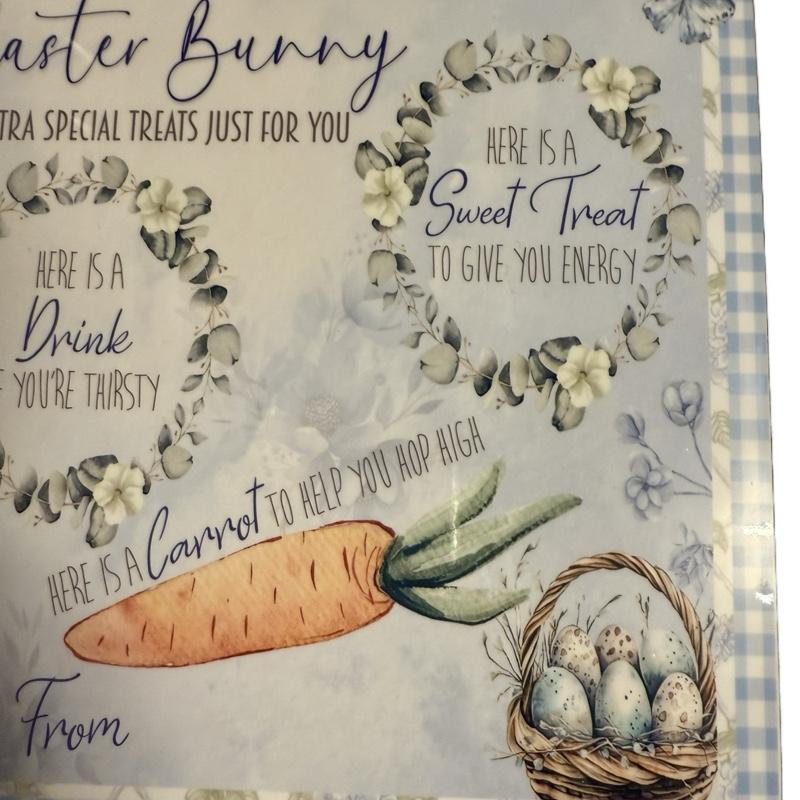 aster Bunny
TRA SPECIAL TREATS JUST FOR YOU
HERE IS A
Sweet Treat
TO GIVE YOU ENERGY
HERE IS A
Drink
F YOU'RE THIRSTY
HERE IS A Carrot TO HELP YOU HOP HIGH
From